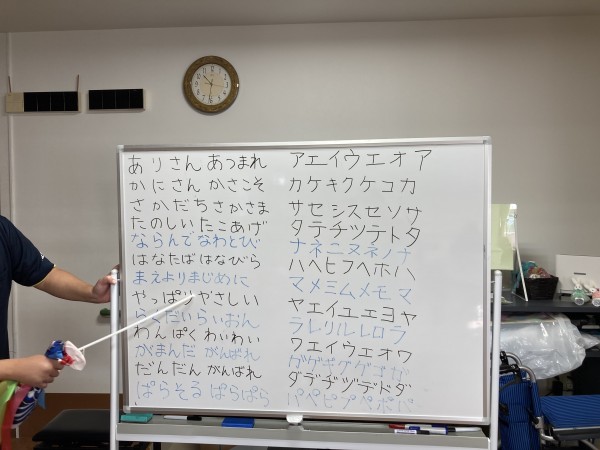 ありさん あつまれ アエイウエオア
かにさん かさこそ カケキクケコカ
さかだち さかさま サセシスセソサ
たのしい たこあげ タテチツテトタ
ならんで なわとび ナネニヌネノナ
はなたば はなびら ハヘヒフヘホハ
まえより まじめに マメミムメモマ
やっぱり やさしい ヤエイユエヨヤ
らくだい らいおん ラレリルレロラ
わんぱく わいわい ワエイウエオワ
がまんだ がんばれ ガゲギグゲゴガ
だんだん がんばれ ダデヂヅデドダ
ぱらそる ぱらぱら パペピプペポパ